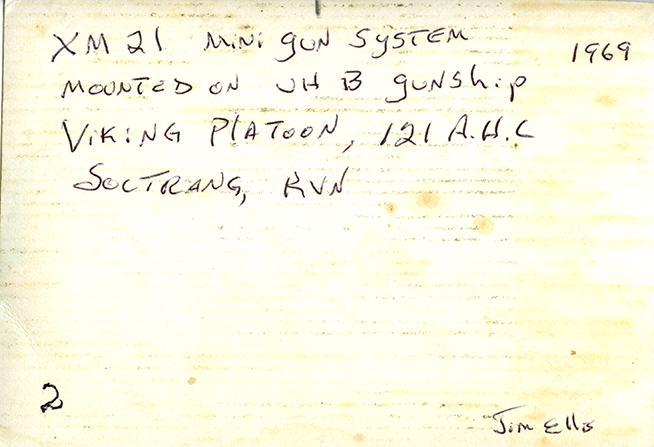 XM 21 Mini gun System 1969
mounted on UH B gunship
Viking Platoon, 121 A.H.C
Soctrang, RVN
2
Jim Ellis